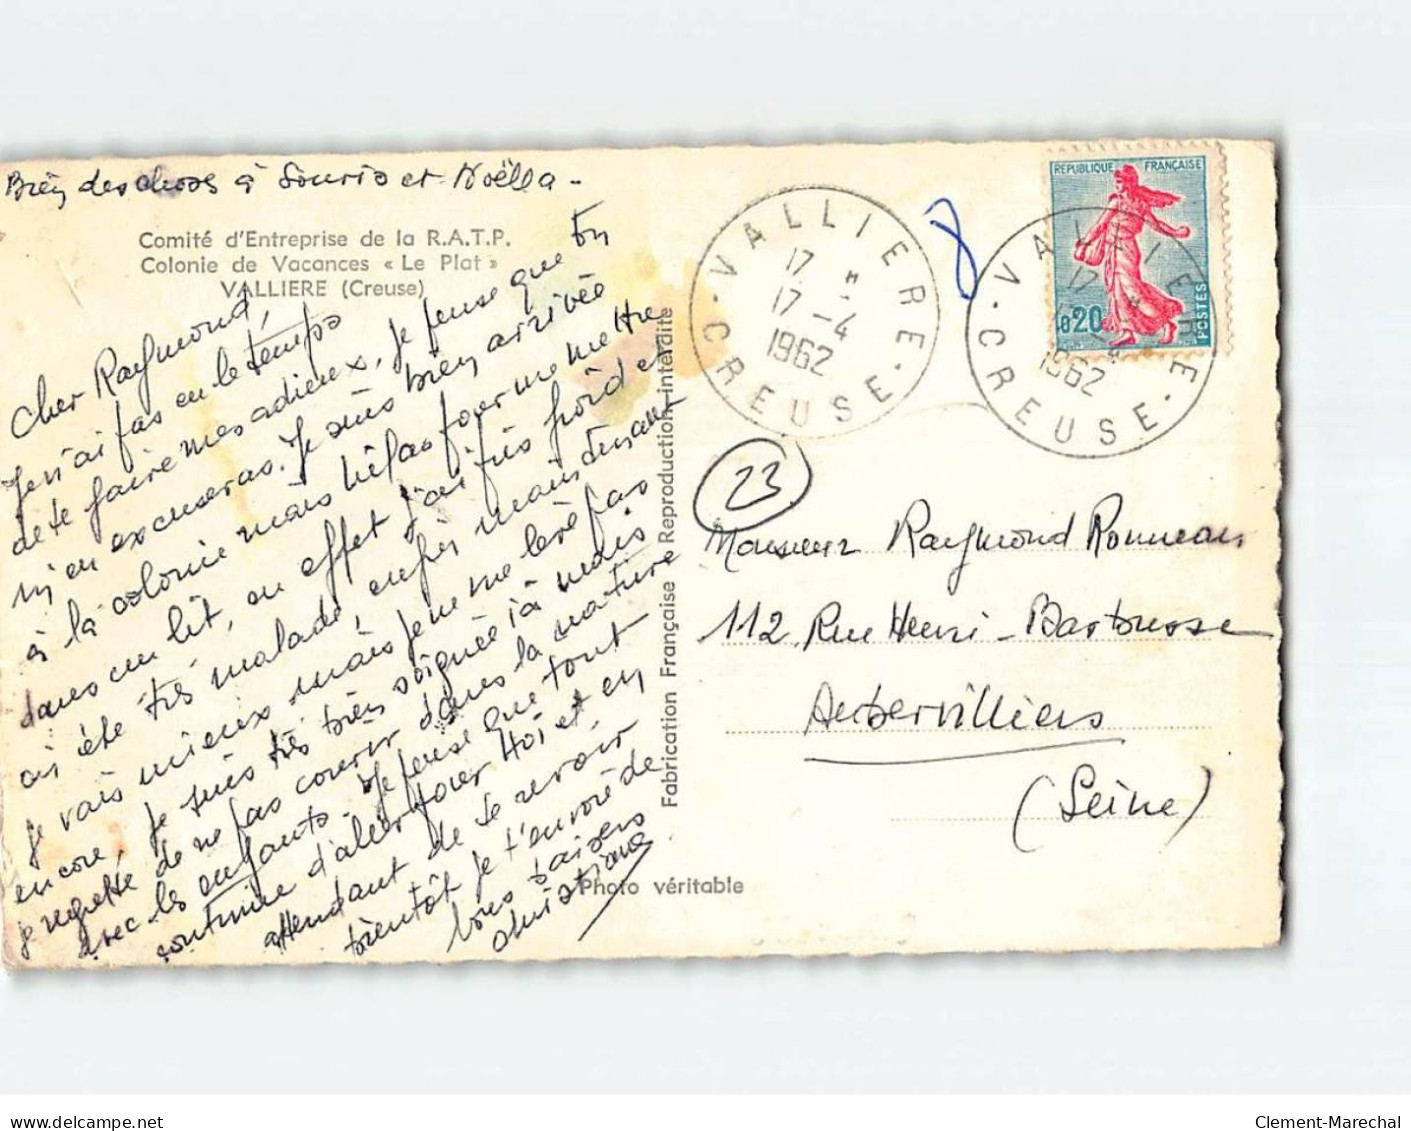 Bien des choses à Souris et Noëlla -
Comité d'Entreprise de la R.A.T.P.
Colonie de Vacances « Le Plat »
VALLIERE (Creuse)
Cher Raymond,
Je n'ai pas eu le temps
de te faire mes adieux, je pense que tu
m'en excuseras. Je suis bien arrivée
à la colonie mais hélas pour me mettre
dans un lit, en effet j'ai pris froid et
ai été très malade, enfin maintenant
je vais mieux mais je ne me lève pas
encore, je suis très bien soignée ici mais
je regrette de ne pas courir dans la nature
avec les enfants. Je pense que tout
continue d'aller pour toi et en
attendant de te revoir
bientôt je t'envoie de
bons baisers
Christiane
Fabrication Française Reproduction interdite
Photo véritable
VALLIERE
17
17 - 4
1962
CREUSE
8
REPUBLIQUE FRANÇAISE
0,20
POSTES
VALLIERE
17
1962
CREUSE
23
Monsieur Raymond Ronneau
112, Rue Henri-Barbusse
Aubervilliers
(Seine)
delcampe.net
Clement-Marechal